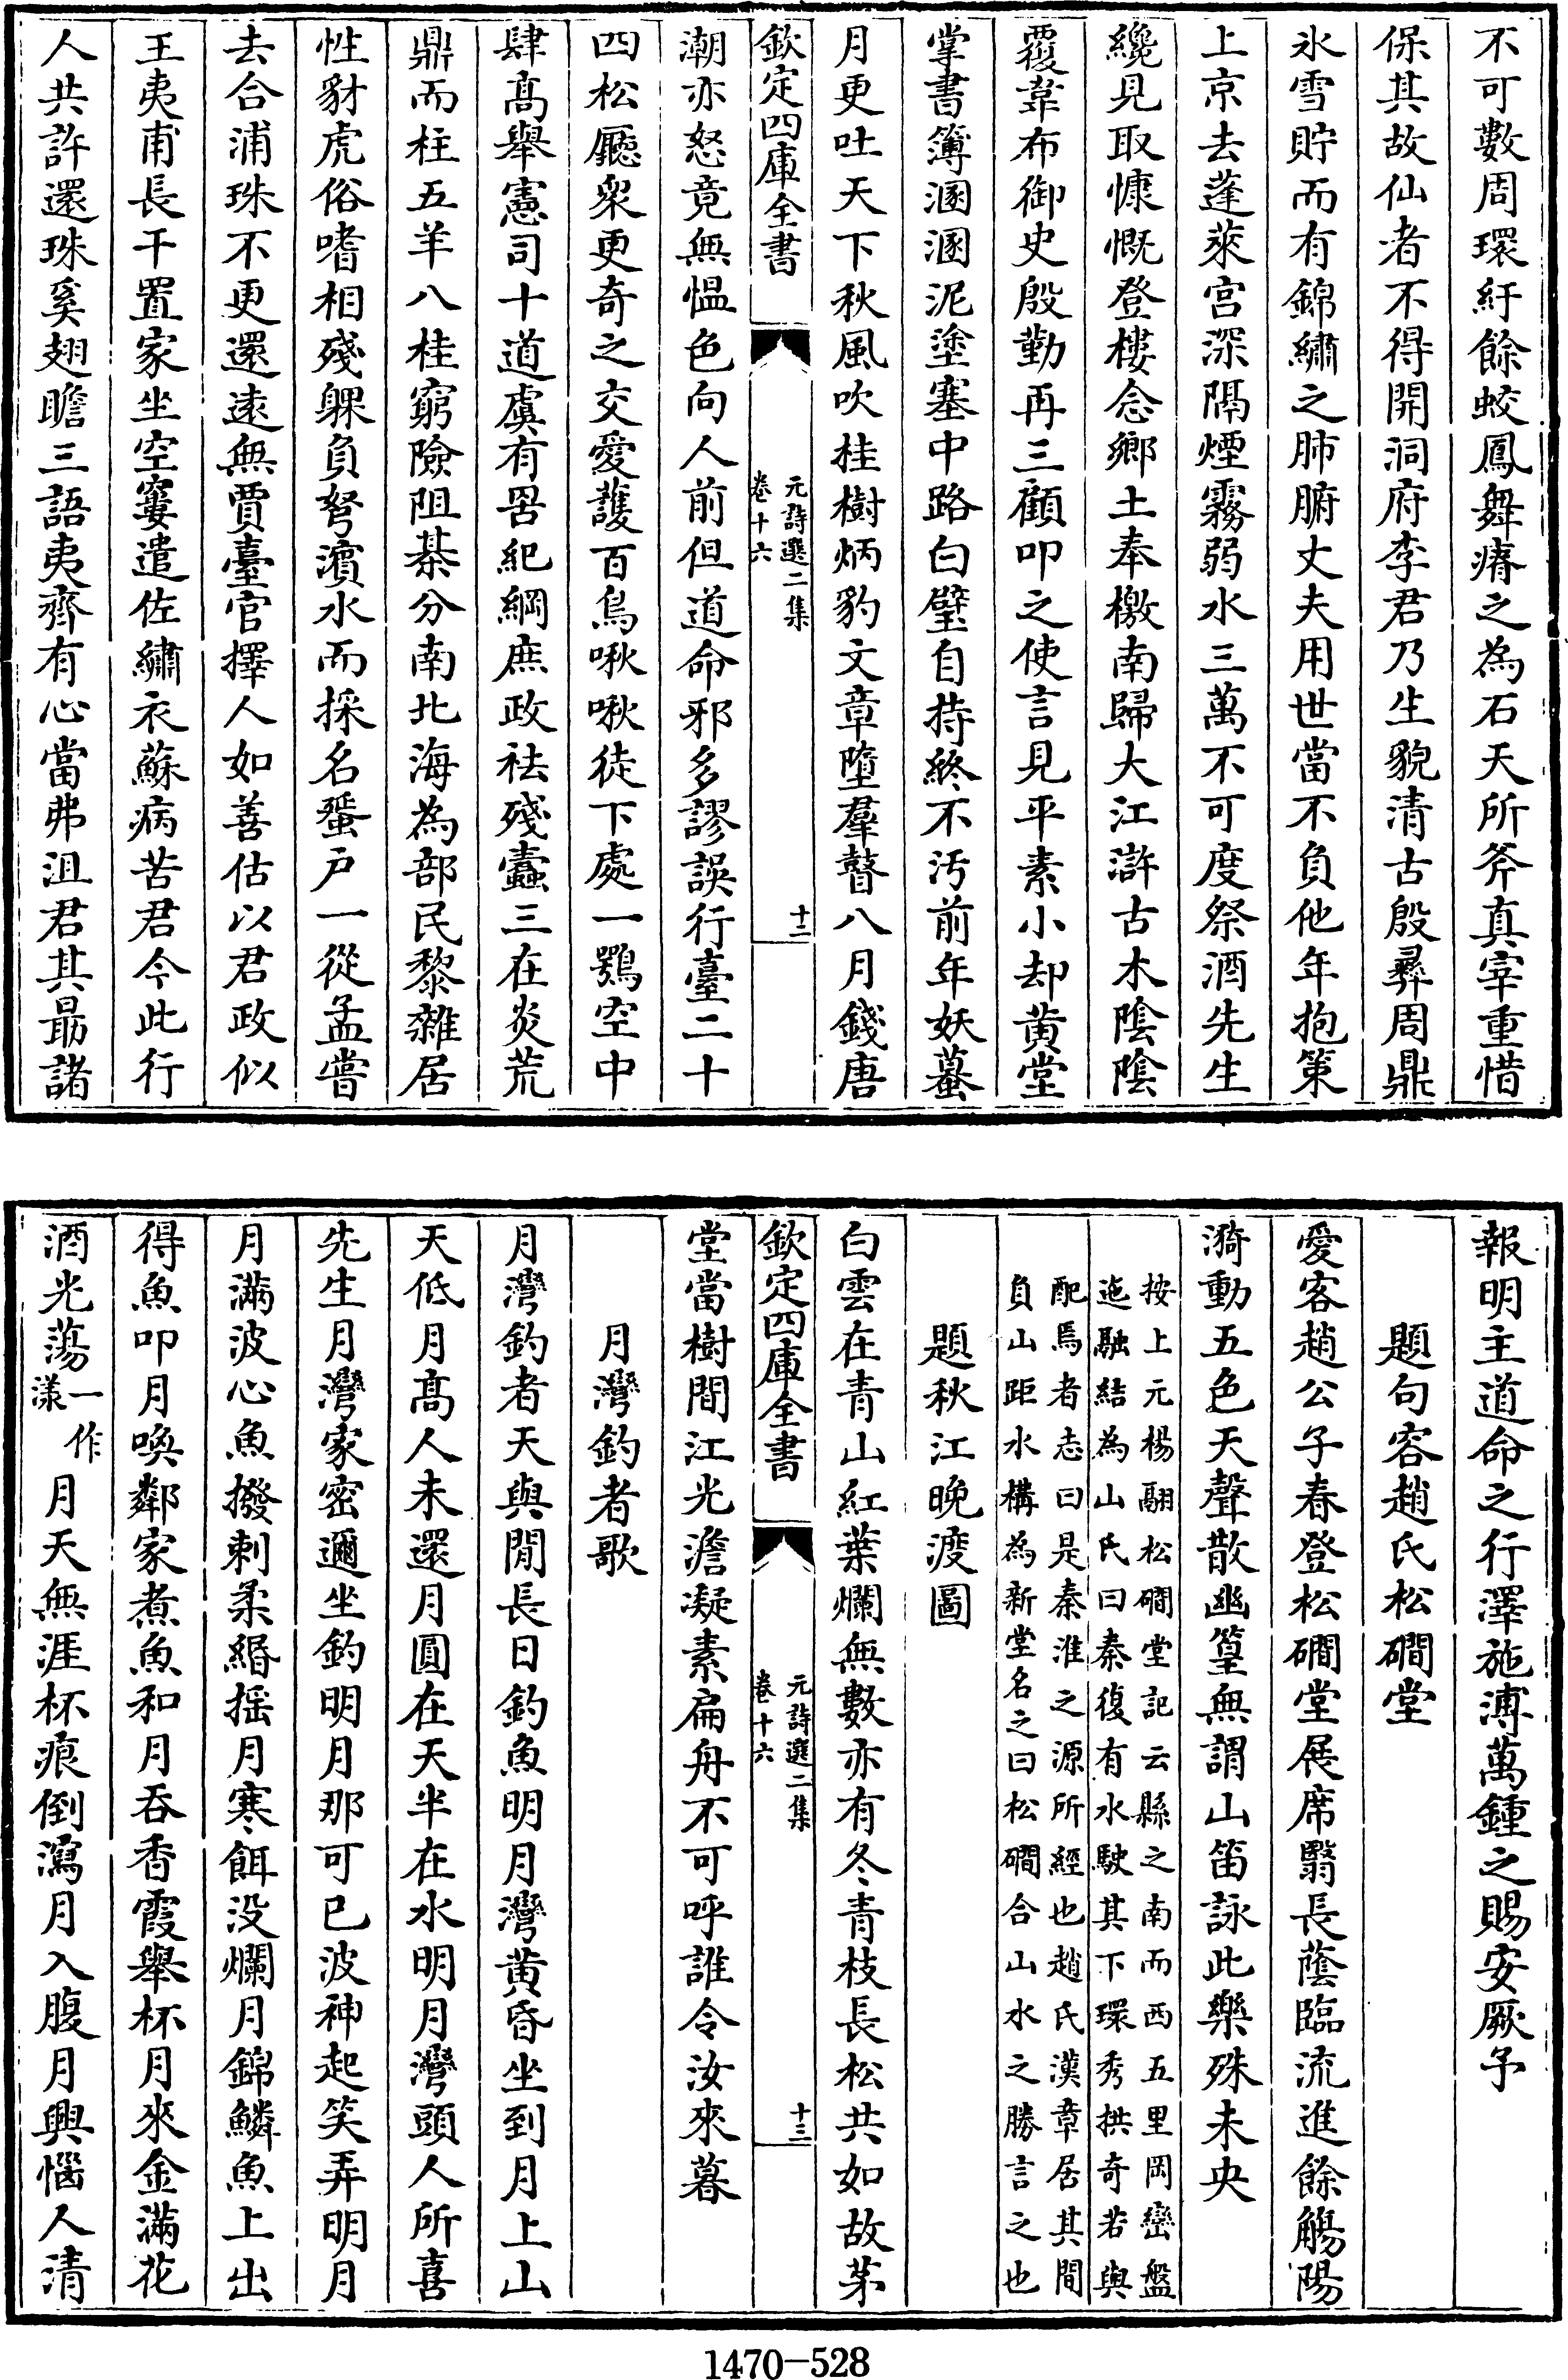 不可數周環紆餘蛟鳳舞瘠之為石天所斧真宰重惜
保其故仙者不得開洞府李君乃生貌清古殷彛周鼎
氷雪貯而有錦繡之肺腑丈夫用世當不負他年抱策
上京去蓬萊宫深隔煙霧弱水三萬不可度祭酒先生
纔見取慷慨登樓念鄉土奉檄南歸大江滸古木陰陰
覆韋布御史殷勤再三顧叩之使言見平素小却黄堂
掌書簿溷溷泥塗塞中路白璧自持終不汚前年妖蟇
月更吐天下秋風吹桂樹炳豹文章墮羣瞽八月錢唐
欽定四庫全書
元詩選二集
卷十六
十二
潮亦怒竟無愠色向人前但道命邪多謬誤行臺二十
四松廳衆更奇之交愛護百鳥啾啾徒下處一鶚空中
肆髙舉憲司十道虞有罟紀綱庶政祛殘蠧三在炎荒
鼎而柱五羊八桂窮險阻棊分南北海為部民黎雜居
性豺虎俗嗜相殘躶負弩濵水而採名蜑户一從孟嘗
去合浦珠不更還遠無賈臺官擇人如善估以君政似
王夷甫長干置家坐空窶遣佐繡衣蘇病苦君今此行
人共許還珠奚翅瞻三語夷齊有心當弗沮君其勗諸
報明主道命之行澤施溥萬鍾之賜安厥予
題句容趙氏松磵堂
愛客趙公子春登松磵堂展席翳長蔭臨流進餘觴陽
漪動五色天聲散幽篁無謂山笛詠此樂殊未央
按上元楊翮松磵堂記云縣之南而西五里岡巒盤
迤融結為山氏曰秦復有水駛其下環秀拱奇若與
配焉者志曰是秦淮之源所經也趙氏漢章居其間
負山距水構為新堂名之曰松磵合山水之勝言之也
題秋江晚渡圖
白雲在青山紅葉爛無數亦有冬青枝長松共如故茅
欽定四庫全書
元詩選二集
卷十六
十三
堂當樹間江光澹凝素扁舟不可呼誰令汝來暮
月灣釣者歌
月灣釣者天與閒長日釣魚明月灣黄昏坐到月上山
天低月髙人未還月圓在天半在水明月灣頭人所喜
先生月灣家密邇坐釣明月那可已波神起笑弄明月
月滿波心魚撥剌柔緡摇月寒餌没爛月錦鱗魚上出
得魚叩月喚鄰家煮魚和月吞香霞舉杯月來金滿花
酒光蕩一作漾月天無涯杯痕倒瀉月入腹月興惱人清
1470-528